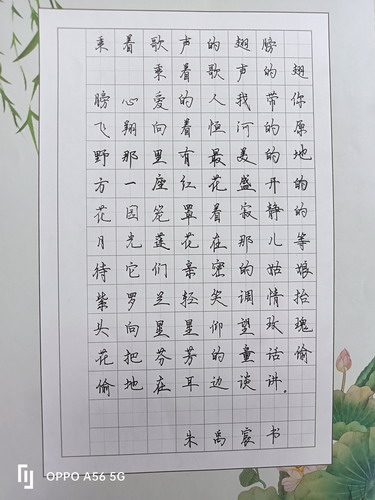 乘着歌声的翅膀
乘着歌声的翅
膀心爱的人我带你
飞翔向着恒河的原
野那里有最美的地
方一座红花盛开的
花园笼罩着寂静的
月光莲花在那儿等
待它们亲密的姑娘
紫罗兰轻笑调情抬
头向星星仰望玫瑰
花把芬芳的童话偷
偷地在耳边谈讲.
朱禹宸书
OPPO A56 5G